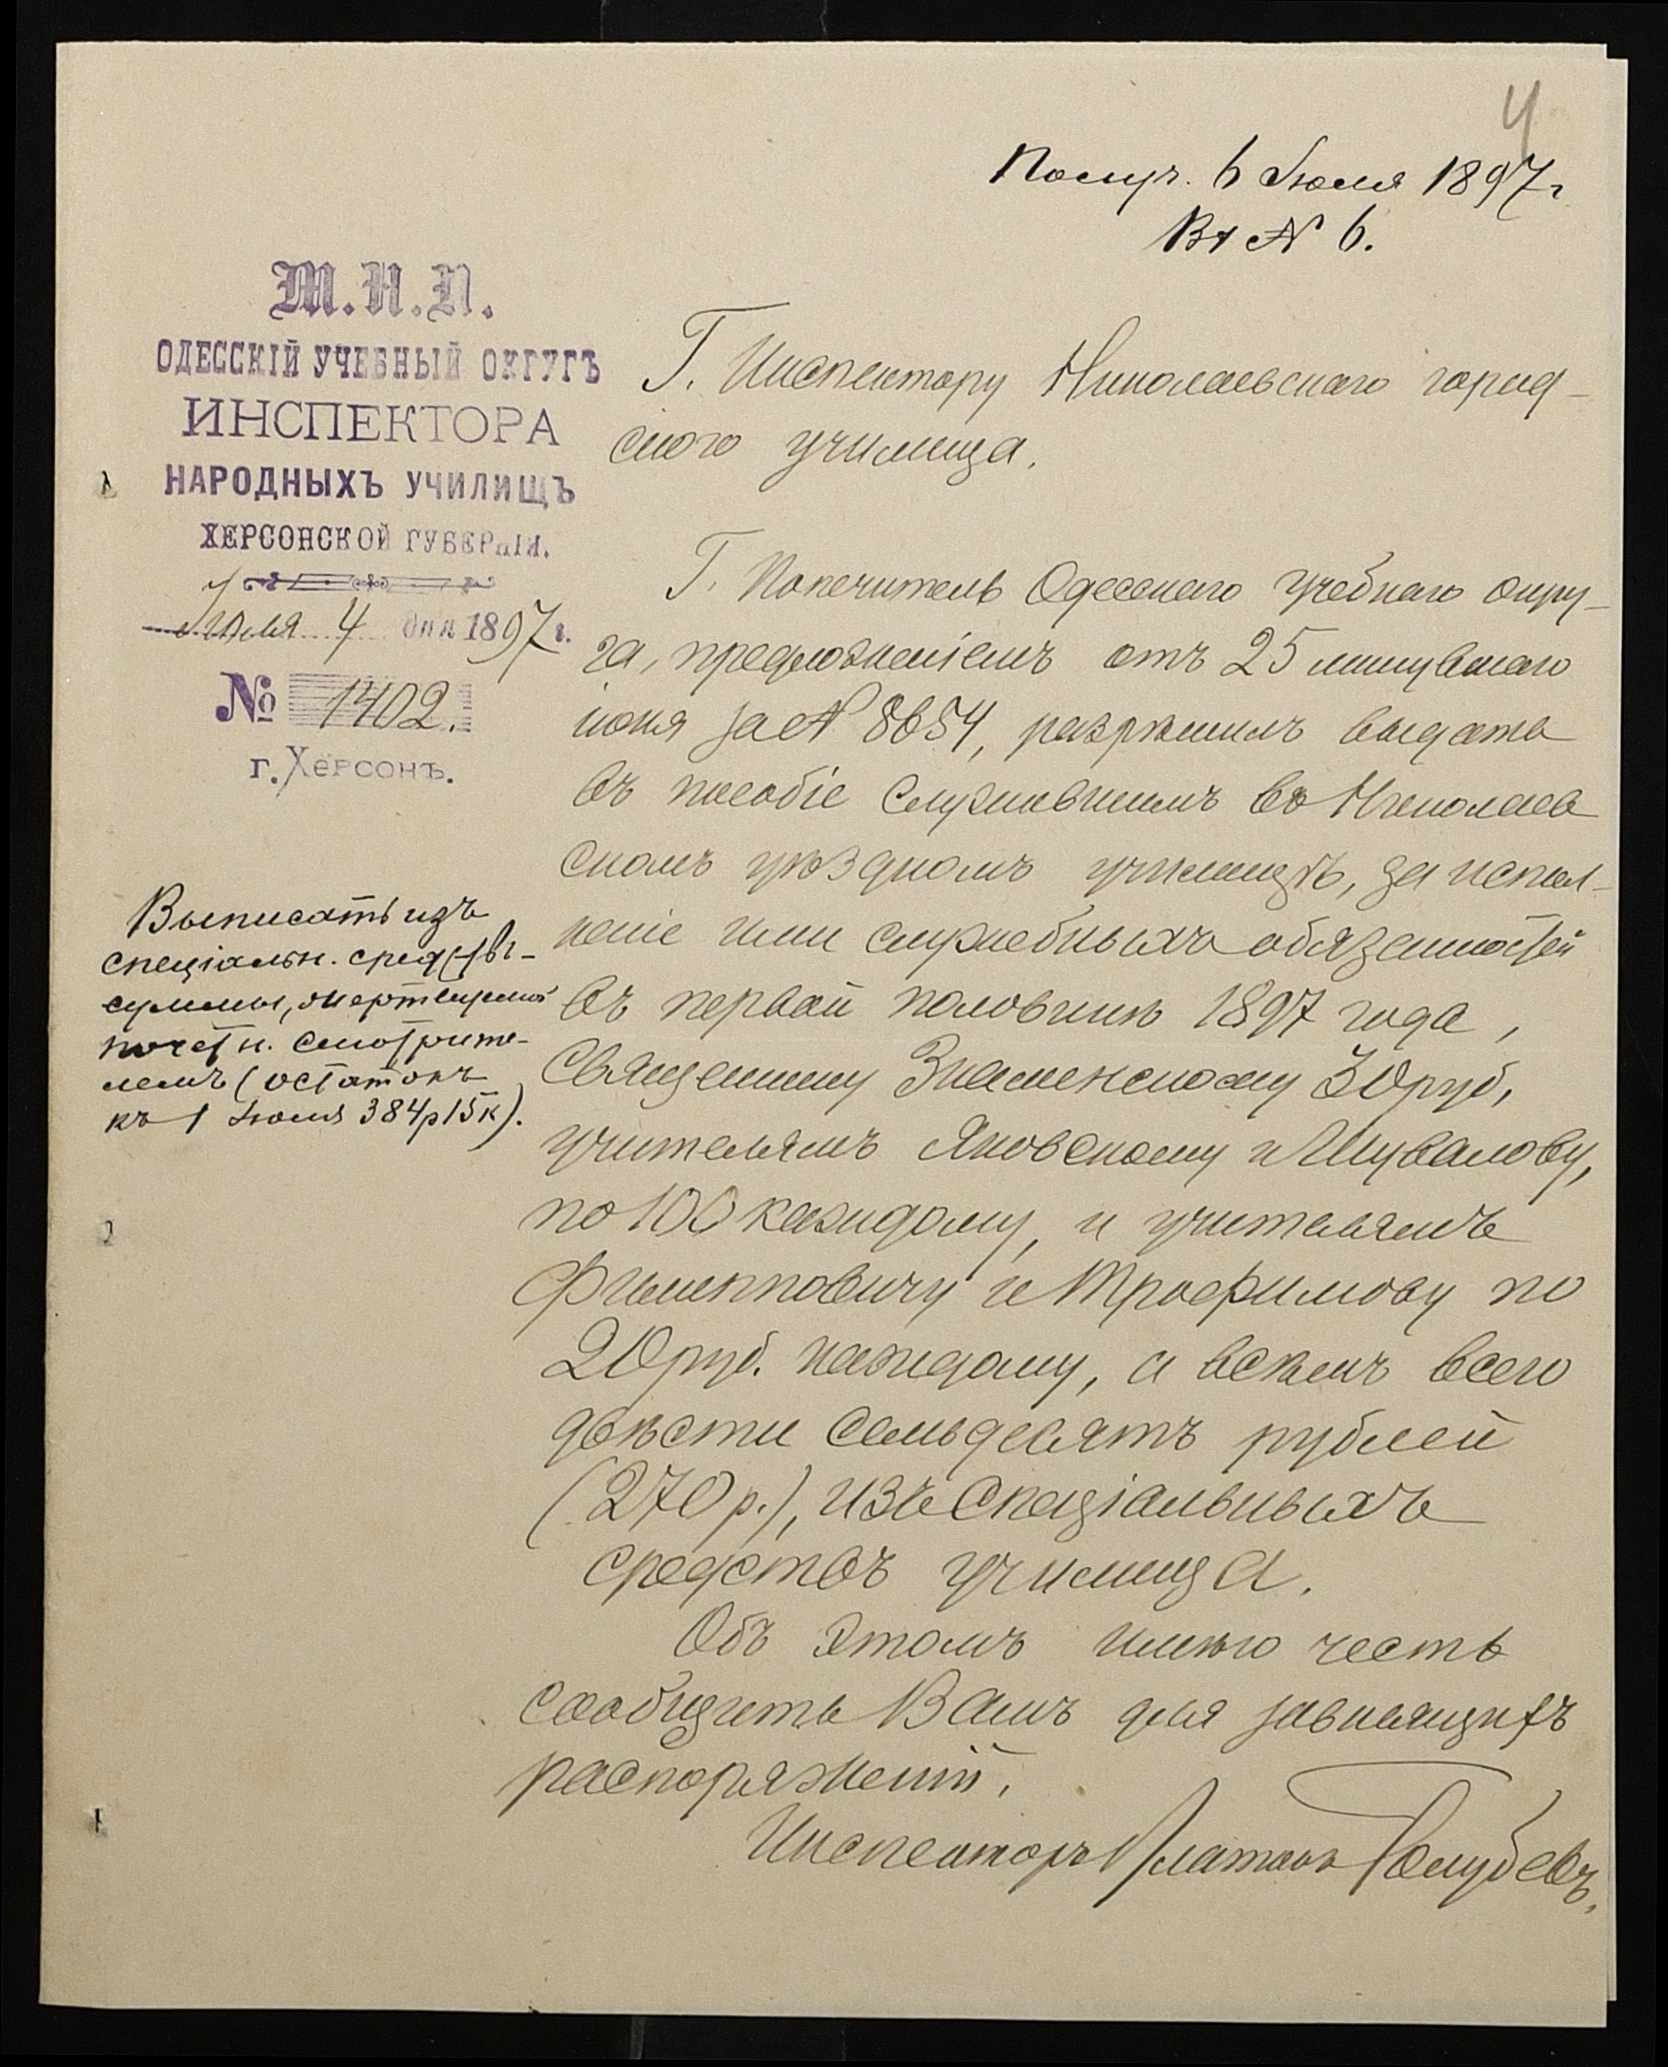 4
Получ. 6 Июля 1897 г
Вх № 6.
М.Н.П.
ОДЕССКІЙ УЧЕБНЫЙ ОКРУГЪ
ИНСПЕКТОРА
НАРОДНЫХЪ УЧИЛИЩЪ
ХЕРСОНСКОЙ ГУБЕРНІИ.
Июля 4 дня 1897 г.
№ 1402.
г. Херсонъ.
Г. Инспектору Николаевскаго город-
ского училища.
Г. Попечитель Одесскаго учебнаго окру-
га, предложеніемъ отъ 25 минувшаго
іюня за № 8654, разрѣшилъ выдать
въ пособіе служившимъ въ Николаев
скомъ уѣздномъ училищѣ, за испол-
неніе ими служебныхъ обязанностей
въ первой половинѣ 1897 года,
Священнику Знаменскому 30 руб,
учителямъ Яновскому и Шувалову,
по 100 каждому, и учителямъ
Филипповичу и Трофимову по
20 руб. каждому, а всѣмъ всего
двѣсти семьдесятъ рублей
(270 р.), изъ спеціальныхъ
средствъ училища.
Объ этомъ имѣю честь
сообщить Вамъ для зависящихъ
распоряженій.
Инспекторъ Платонъ Голубевъ.
Выписать изъ
спеціальн. средствъ-
суммы, жертвуемой
почетн. смотрите-
лемъ (остатокъ
къ 1 Июля 384 р 15 к).